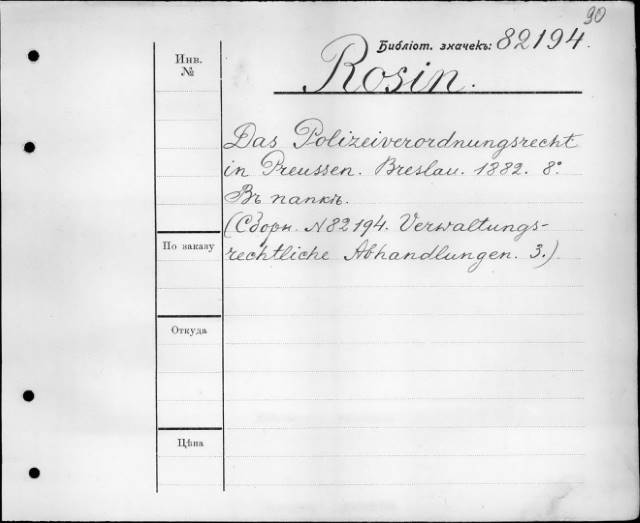 90
Библіот. значекъ: 82194.
Инв.
№
Rosin.
Das Polizeiverordnungsrecht
in Preussen. Breslau. 1882. 8°.
Въ папкѣ.
(Сборн. №82194. Verwaltungs-
rechtliche Abhandlungen. 3.)
По заказу
Откуда
Цѣна